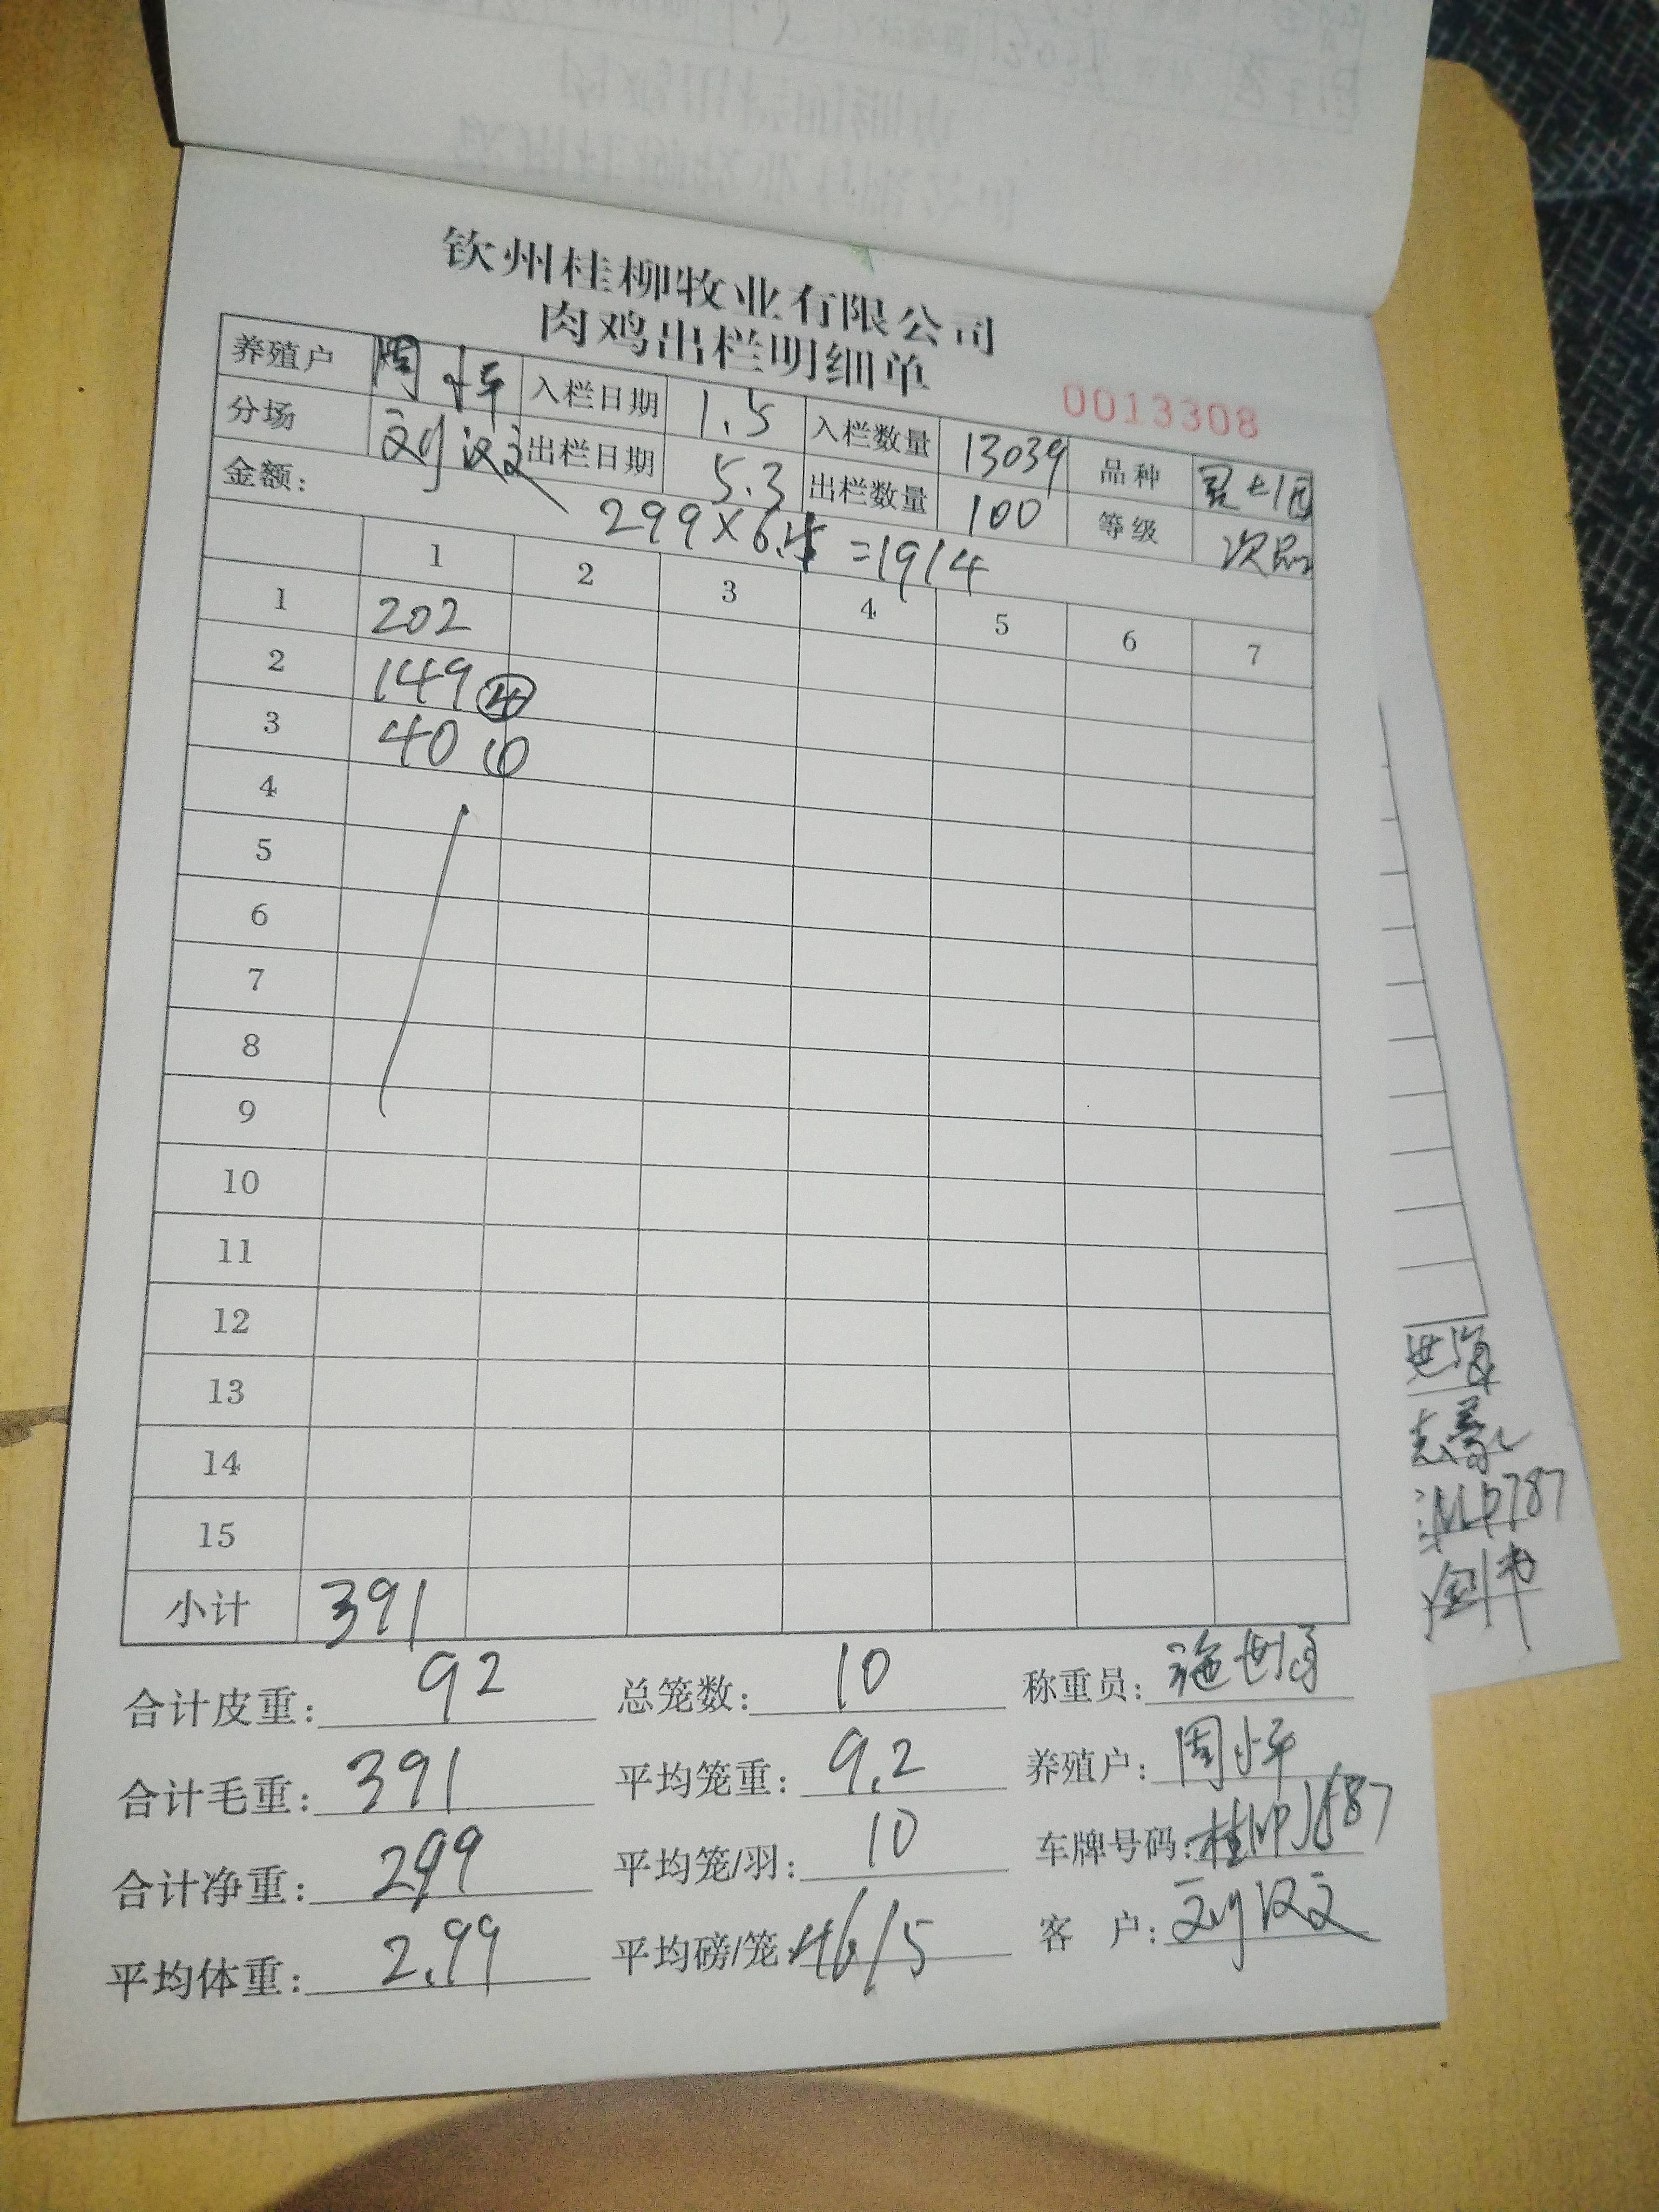 钦州桂柳牧业有限公司
肉鸡出栏明细单
0013308
养殖户 周小平 入栏日期 1.5 入栏数量 13039 品种
分场 刘汉文 出栏日期 5.3 出栏数量 100 等级 次品
金额: 299×6.4=1914
1 2 3 4 5 6 7
1 202
2 149 ④
3 40 ①
4
5
6
7
8
9
10
11
12
13
14
15
小计 391
合计皮重: 92 总笼数: 10 称重员: 施世海
合计毛重: 391 平均笼重: 9.2 养殖户: 周小平
合计净重: 299 平均笼/羽: 10 车牌号码:
平均体重: 2.99 平均磅/笼: 客 户: 刘汉文